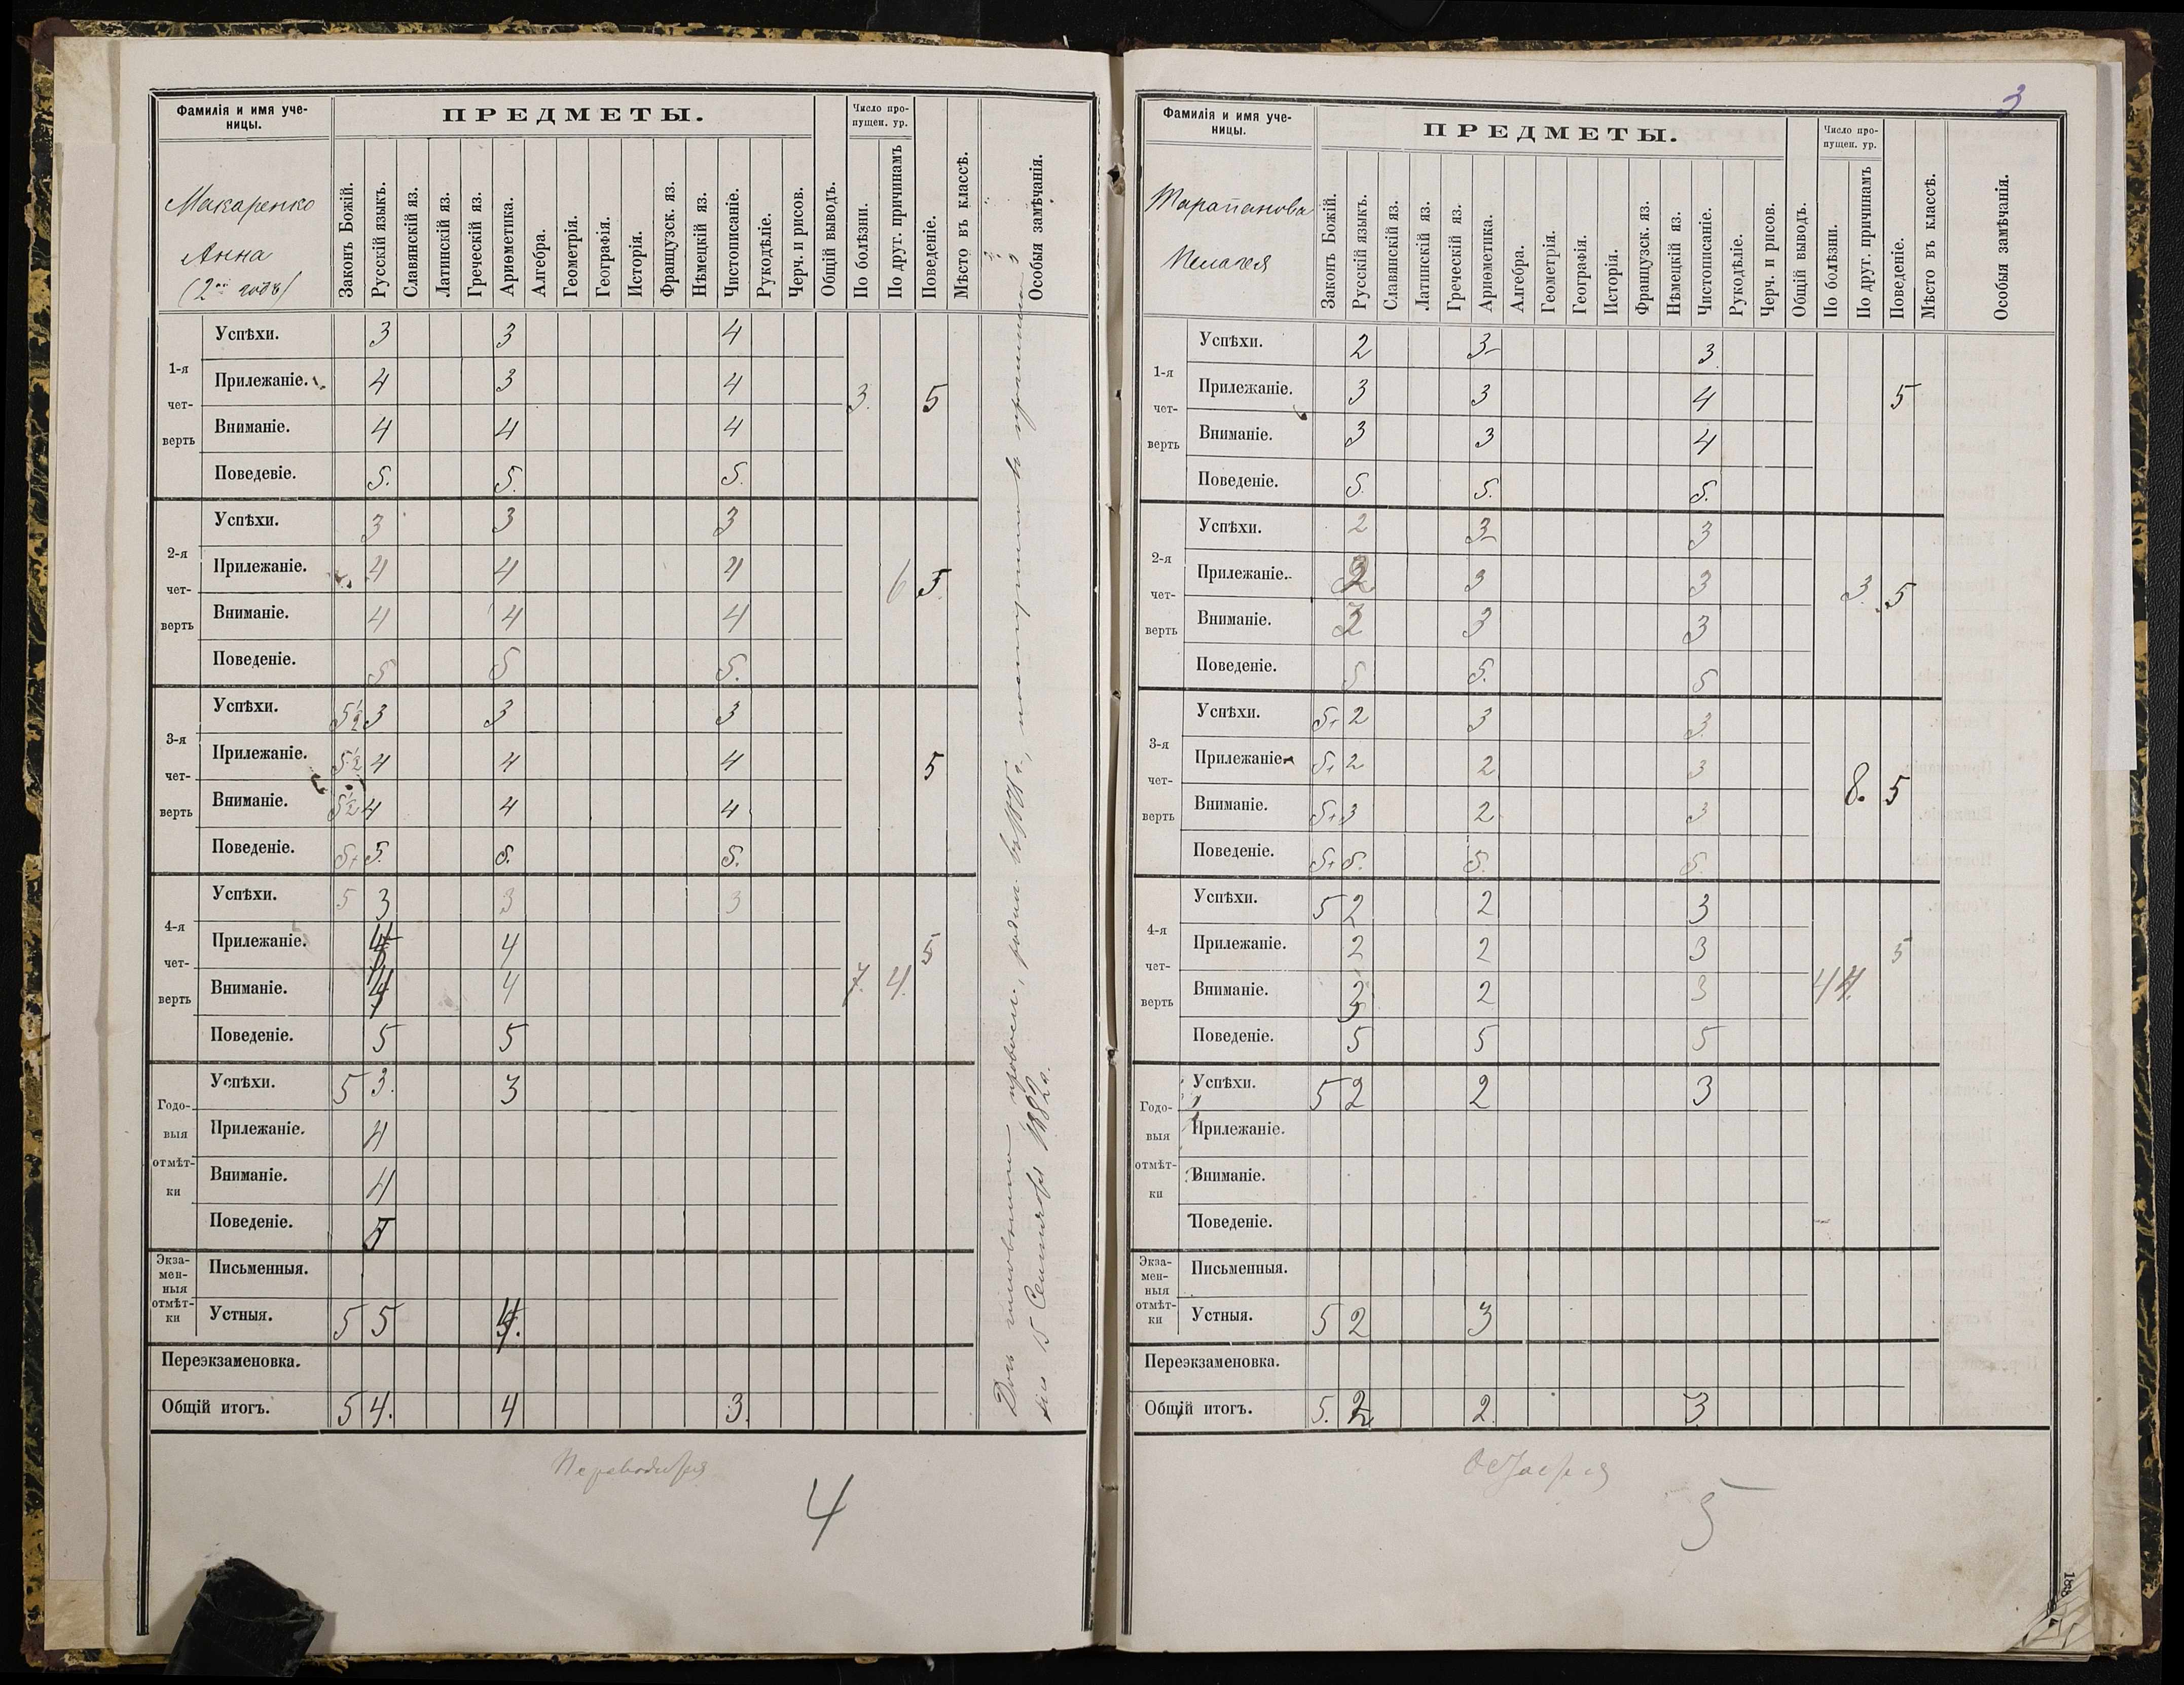 Фамилія и имя уче-
ницы.
ПРЕДМЕТЫ.
Число про-
пущен. ур.
Макаренко
Анна
(2ой годъ)
Законъ Божій.
Русскій языкъ.
Славянскій яз.
Латинскій яз.
Греческій яз.
Ариѳметика.
Алгебра.
Геометрія.
Географія.
Исторія.
Французск. яз.
Нѣмецкій яз.
Чистописаніе.
Рукодѣліе.
Черч. и рисов.
Общій выводъ.
По болѣзни.
По друг. причинамъ
Поведеніе.
Мѣсто въ классѣ.
Особыя замѣчанія.
1-я
чет-
верть
Успѣхи. 3 3 4
Прилежаніе. 4 3 4
3. 5
Вниманіе. 4 4 4
Поведевіе. 5. 5. 5.
2-я
чет-
верть
Успѣхи. 3 3 3
Прилежаніе. 4 4 4
6 5
Вниманіе. 4 4 4
Поведеніе. 5 5 5.
3-я
чет-
верть
Успѣхи. 5½ 3 3 3
Прилежаніе. 5½ 4 4 4
5
Вниманіе. 5½ 4 4 4
Поведеніе. 5+ 5. 5. 5.
4-я
чет-
верть
Успѣхи. 5 3 3 3
Прилежаніе. 4 4
5
Вниманіе. 4 4 7. 4.
Поведеніе. 5 5
Годо-
выя
отмѣт-
ки
Успѣхи. 5 3. 3
Прилежаніе. 4
Вниманіе. 4
Поведеніе. 5
Экза-
мен-
ныя
отмѣт-
ки
Письменныя.
Устныя. 5 5 4.
Переэкзаменовка.
Общій итогъ. 5 4. 4 3.
Дочь чиновника
15 Сентября 1882 г.
Переводится
4
3
Фамилія и имя уче-
ницы.
ПРЕДМЕТЫ.
Число про-
пущен. ур.
Пелагея
Законъ Божій.
Русскій языкъ.
Славянскій яз.
Латинскій яз.
Греческій яз.
Ариѳметика.
Алгебра.
Геометрія.
Географія.
Исторія.
Французск. яз.
Нѣмецкій яз.
Чистописаніе.
Рукодѣліе.
Черч. и рисов.
Общій выводъ.
По болѣзни.
По друг. причинамъ
Поведеніе.
Мѣсто въ классѣ.
Особыя замѣчанія.
1-я
чет-
верть
Успѣхи. 2 3- 3
Прилежаніе. 3 3 4
5
Вниманіе. 3 3 4
Поведеніе. 5. 5. 5.
2-я
чет-
верть
Успѣхи. 2 3- 3
Прилежаніе. 3 3
3. 5
Вниманіе. 3 3
Поведеніе. 5 5. 5
3-я
чет-
верть
Успѣхи. 5+ 2 3 3
Прилежаніе 5+ 2 2 3
8. 5
Вниманіе. 5+ 3 2 3
Поведеніе. 5+ 5. 5. 5.
4-я
чет-
верть
Успѣхи. 5 2 2 3
Прилежаніе. 2 2 3
5
Вниманіе. 2 3 4
Поведеніе. 5 5 5
Годо-
выя
отмѣт-
ки
Успѣхи. 5 2 2 3
Прилежаніе.
Вниманіе.
Поведеніе.
Экза-
мен-
ныя
отмѣт-
ки
Письменныя.
Устныя. 5 2 3
Переэкзаменовка.
Общій итогъ. 5. 2 2. 3
Остается
5